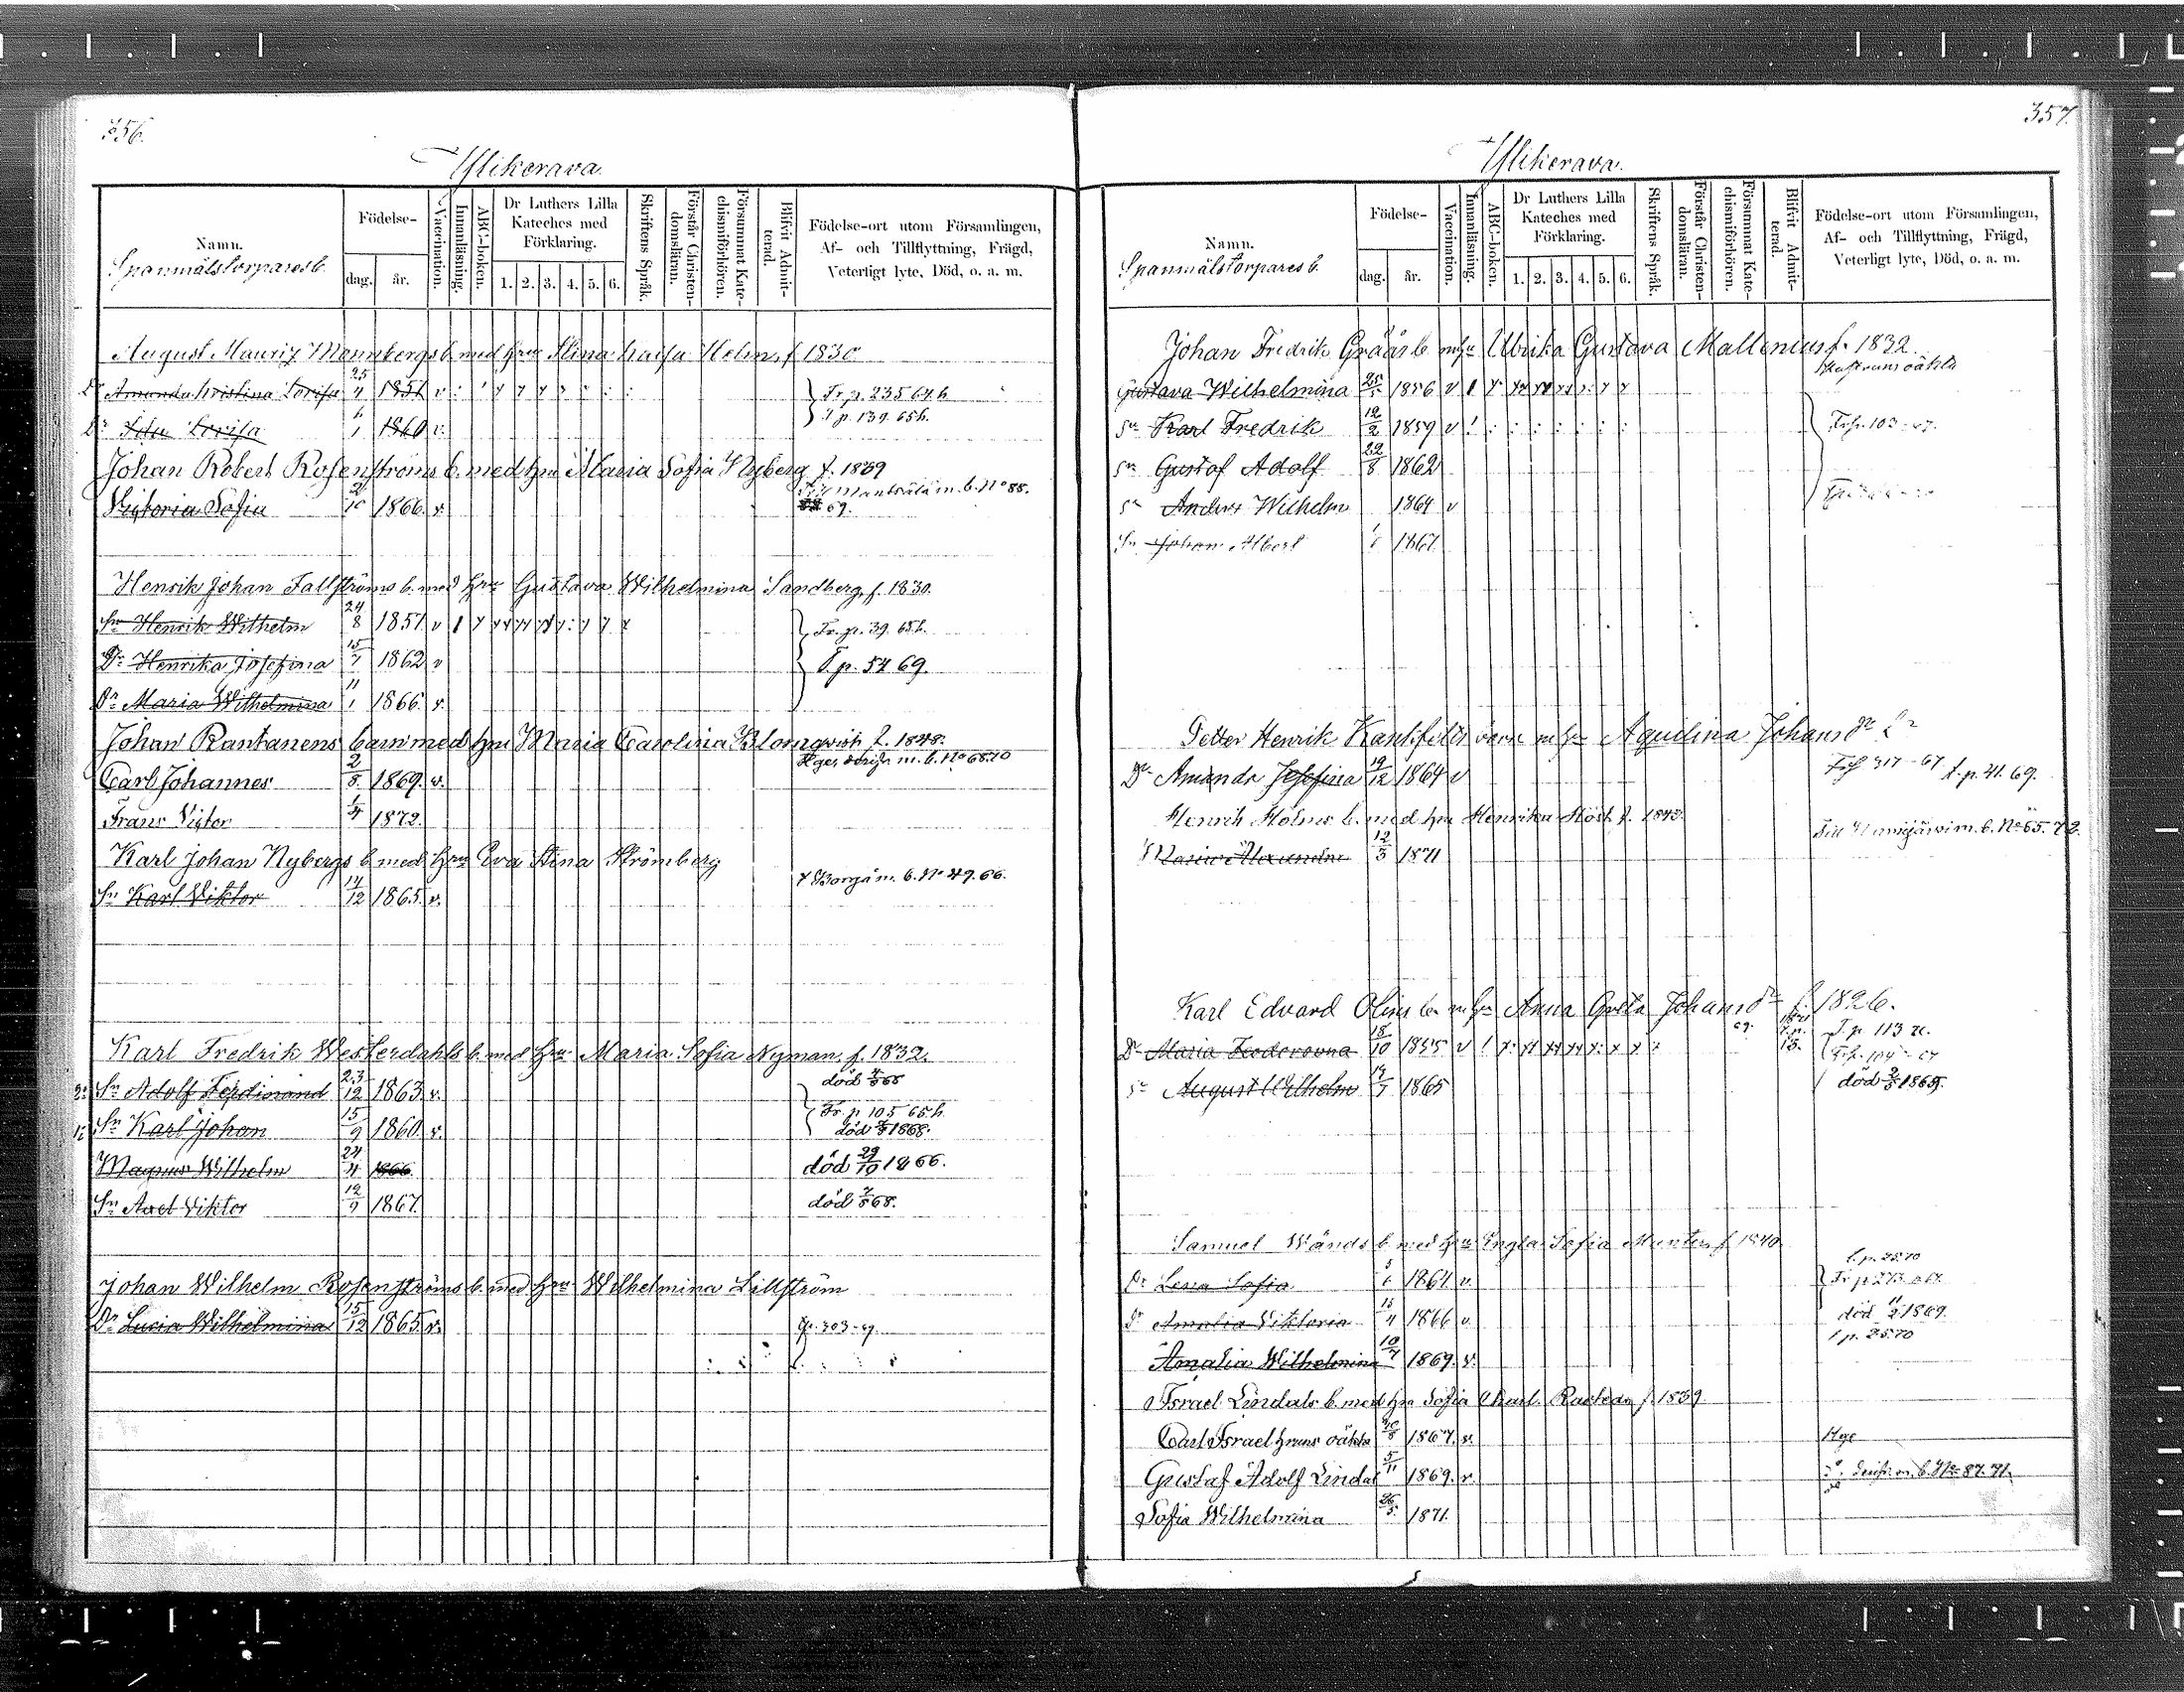 356.
Ylikerava.
Namn.
Spanmålstorpares b.
Födelse-
dag.
år.
Vaccination.
Innanläsning.
ABC-boken.
Dr Luthers Lilla
Kateches med
Förklaring.
1. 2. 3. 4. 5. 6.
Skriftens Språk.
Förstår Christen-
domsläran.
Försummat Kate-
chismiförhören.
Blifvit Admit-
terad.
Födelse-ort utom Församlingen,
Af- och Tillflyttning, Frägd,
Veterligt lyte, Död, o. a. m.
August Mauriz Mannbergs b. med hru Stina Lovisa Holm, f 1830
Dr Amanda Kristina Lovisa 25/4 1851 v Fr. p. 235 64. h.
T p. 139. 65 h.
Dr Ida Lovisa 1860 v.
Johan Robert Rosenströms b. med hru Maria Sofia Nyberg f. 1839
Till Mäntsälä m. b. No 88.
69.
Victoria Sofia 1866. v.
Henrik Johan Fallströms b. med hru Gustava Wilhelmina Sandberg, f. 1830.
Sn Henrik Wilhelm 24/8 1851. v Fr. p. 39. 65 h.
Dr Henrika Josefina 15/7 1862 v T. p. 54 69.
Dr Maria Wilhelmina 11/1 1866. v.
Johan Rantanens barn med hru Maria Carolina Blomqvist f. 1848.
m. b. No 68. 70
Carl Johannes 2/8 1869. v.
Frans Victor 1/4 1872.
Karl Johan Nybergs b. med hru Eva Stina Strömberg
t Borgå m. b. No 49. 66.
Sn Karl Viktor 14/12 1865. v.
Karl Fredrik Westerdahls b. med hru Maria Sofia Nyman, f. 1832.
2: Sn Adolf Ferdinand 23/12 1863. v. död
Fr. p. 105 65. h.
1: Sn Karl Johan 15/9 1860. v. död 1868.
Magnus Wilhelm 24/4 1866 död 29/10 1866.
Sn Axel Viktor 12/9 1867. död 68.
Johan Wilhelm Rosenströms b. med hru Wilhelmina Lillström
Dr Lucia Wilhelmina 15/12 1865. v.
357.
Ylikerava.
Namn.
Spanmålstorpares b.
Födelse-
dag.
år.
Vaccination.
Innanläsning.
ABC-boken.
Dr Luthers Lilla
Kateches med
Förklaring.
1. 2. 3. 4. 5. 6.
Skriftens Språk.
Förstår Christen-
domsläran.
Försummat Kate-
chismiförhören.
Blifvit Admit-
terad.
Födelse-ort utom Församlingen,
Af- och Tillflyttning, Frägd,
Veterligt lyte, Död, o. a. m.
Johan Fredrik Gräås b. m hu Ulrika Gustava Mallenius f. 1832.
Gustava Wilhelmina 25/5 1856 v
sn Karl Fredrik 12/2 1859 v Fr. p. 103 - 67.
sn Gustof Adolf 22/8 1862
sn Anders Wilhelm 1864 v
Sn Johan Albert 1867
Petter Henrik barn m hu Agulina Johans dr
Dr Amanda Josefina 19/12 1864 v 317 - 67 t. p. 41. 69.
Henrik Holms b. med hru Henrika Höst f. 1843.
Maria Alexandra 12/3 1871 m. b. No 65. 72.
Karl Edvard Olins b. m hu Anna Greta Johans dr f. 1826.
Dr Maria Teodorovna 18/10 1855 v T. p. 113
Fr. p. 104 - 67
sn August Wilhelm 1865 död 1865.
Samuel Wånds b. med hru Engla Sofia Munter, f. 1840.
t. p. 25. 70
Dr Lena Sofia 1864 v.
Dr Amalia Viktoria 1866 v. död 1869.
t p. 25. 70
Amalia Wilhelmina 1869. v.
Israel Lindals b. med hru Sofia Charl. f. 1839
Carl Israel hruns oäkta 1867. v.
Gustaf Adolf Lindal 5/11 1869. v. m. b. No 87. 71.
Sofia Wilhelmina 26/5 1871.